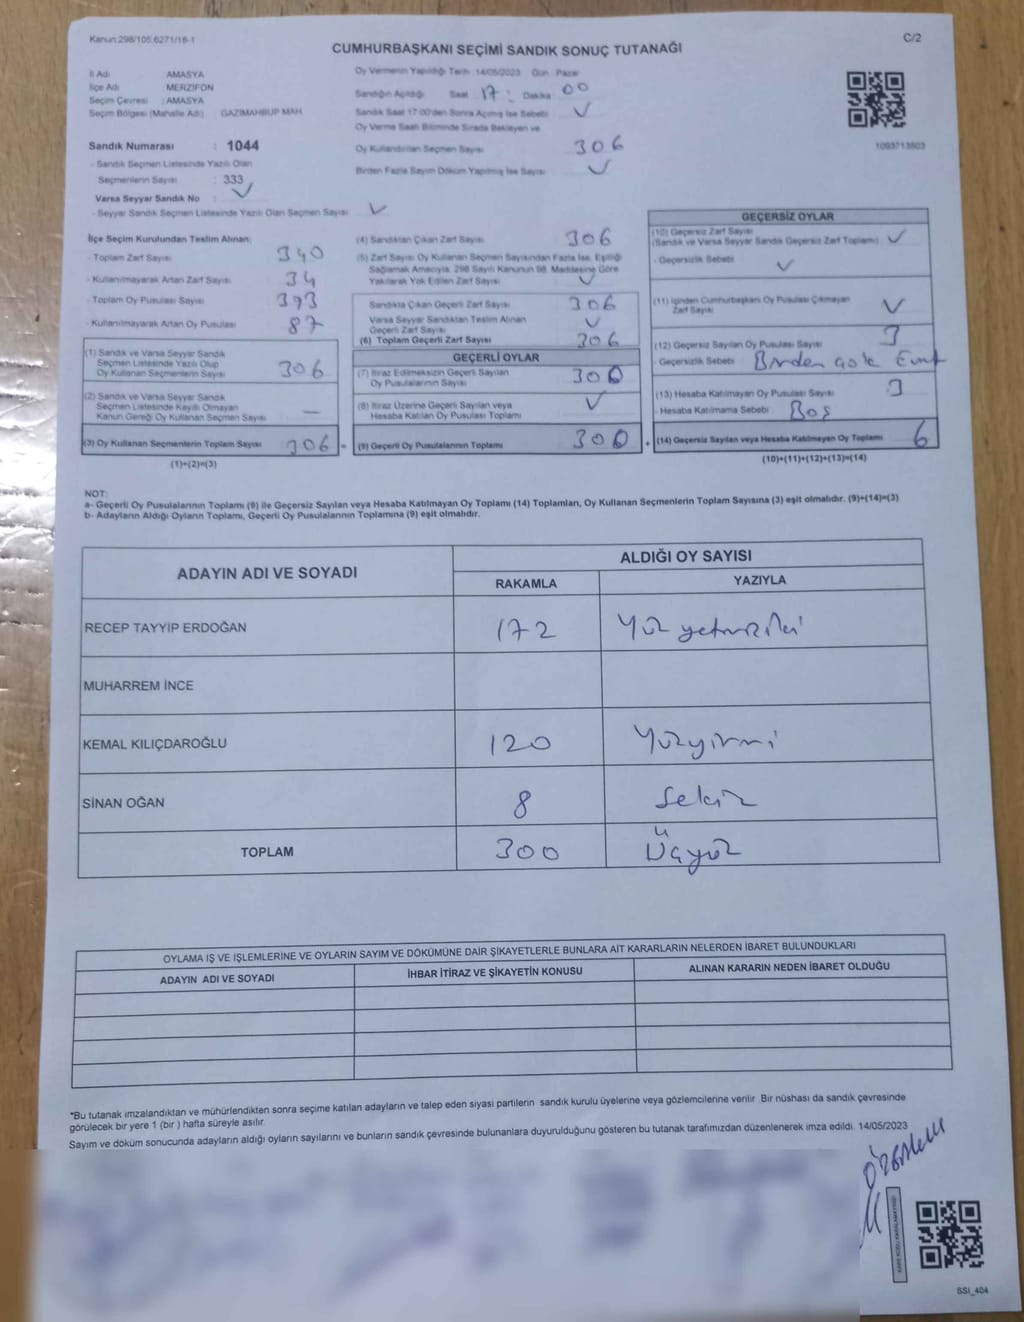 Kanun:298/105;6271/18-1
C/2
CUMHURBAŞKANI SEÇİMİ SANDIK SONUÇ TUTANAĞI
İl Adı AMASYA
İlçe Adı MERZİFON
Seçim Çevresi : AMASYA
Seçim Bölgesi (Mahalle Adı) GAZİMAHBUP MAH.
Oy Vermenin Yapıldığı Tarih 14/05/2023 Gün Pazar
Sandığın Açıldığı Saat 17 : Dakika 00
Sandık Saat 17:00'den Sonra Açılmış İse Sebebi
Oy Verme Saati Bitiminde Sırada Bekleyen ve
Oy Kullandırılan Seçmen Sayısı 306
Birden Fazla Sayım Döküm Yapılmış İse Sayısı
1093713503
Sandık Numarası : 1044
- Sandık Seçmen Listesinde Yazılı Olan
Seçmenlerin Sayısı : 333
Varsa Seyyar Sandık No :
- Seyyar Sandık Seçmen Listesinde Yazılı Olan Seçmen Sayısı
İlçe Seçim Kurulundan Teslim Alınan;
- Toplam Zarf Sayısı 340
- Kullanılmayarak Artan Zarf Sayısı 34
- Toplam Oy Pusulası Sayısı 393
- Kullanılmayarak Artan Oy Pusulası 87
(1) Sandık ve Varsa Seyyar Sandık
Seçmen Listesinde Yazılı Olup
Oy Kullanan Seçmenlerin Sayısı 306
(2) Sandık ve Varsa Seyyar Sandık
Seçmen Listesinde Kayıtlı Olmayan
Kanun Gereği Oy Kullanan Seçmen Sayısı —
(3) Oy Kullanan Seçmenlerin Toplam Sayısı 306 =
(1)+(2)=(3)
(4) Sandıktan Çıkan Zarf Sayısı 306
(5) Zarf Sayısı Oy Kullanan Seçmen Sayısından Fazla İse, Eşitliği
Sağlamak Amacıyla, 298 Sayılı Kanunun 98. Maddesine Göre
Yakılarak Yok Edilen Zarf Sayısı
Sandıkta Çıkan Geçerli Zarf Sayısı 306
Varsa Seyyar Sandıktan Teslim Alınan
Geçerli Zarf Sayısı
(6) Toplam Geçerli Zarf Sayısı 306
GEÇERLİ OYLAR
(7) İtiraz Edilmeksizin Geçerli Sayılan
Oy Pusulalarının Sayısı 300
(8) İtiraz Üzerine Geçerli Sayılan veya
Hesaba Katılan Oy Pusulası Toplamı
(9) Geçerli Oy Pusulalarının Toplamı 300 +
GEÇERSİZ OYLAR
(10) Geçersiz Zarf Sayısı
(Sandık ve Varsa Seyyar Sandık Geçersiz Zarf Toplamı)
- Geçersizlik Sebebi
(11) İçinden Cumhurbaşkanı Oy Pusulası Çıkmayan
Zarf Sayısı
(12) Geçersiz Sayılan Oy Pusulası Sayısı 3
- Geçersizlik Sebebi Birden çok Evet
(13) Hesaba Katılmayan Oy Pusulası Sayısı 3
- Hesaba Katılmama Sebebi Boş
(14) Geçersiz Sayılan veya Hesaba Katılmayan Oy Toplamı 6
(10)+(11)+(12)+(13)=(14)
NOT:
a- Geçerli Oy Pusulalarının Toplamı (9) ile Geçersiz Sayılan veya Hesaba Katılmayan Oy Toplamı (14) Toplamları, Oy Kullanan Seçmenlerin Toplam Sayısına (3) eşit olmalıdır. (9)+(14)=(3)
b- Adayların Aldığı Oyların Toplamı, Geçerli Oy Pusulalarının Toplamına (9) eşit olmalıdır.
ADAYIN ADI VE SOYADI
ALDIĞI OY SAYISI
RAKAMLA YAZIYLA
RECEP TAYYİP ERDOĞAN 172 Yüz yetmişiki
MUHARREM İNCE
KEMAL KILIÇDAROĞLU 120 Yüzyirmi
SİNAN OĞAN 8 Sekiz
TOPLAM 300 Üçyüz
OYLAMA İŞ VE İŞLEMLERİNE VE OYLARIN SAYIM VE DÖKÜMÜNE DAİR ŞİKAYETLERLE BUNLARA AİT KARARLARIN NELERDEN İBARET BULUNDUKLARI
ADAYIN ADI VE SOYADI İHBAR İTİRAZ VE ŞİKAYETİN KONUSU ALINAN KARARIN NEDEN İBARET OLDUĞU
*Bu tutanak imzalandıktan ve mühürlendikten sonra seçime katılan adayların ve talep eden siyasi partilerin sandık kurulu üyelerine veya gözlemcilerine verilir. Bir nüshası da sandık çevresinde
görülecek bir yere 1 (bir ) hafta süreyle asılır.
Sayım ve döküm sonucunda adayların aldığı oyların sayılarını ve bunların sandık çevresinde bulunanlara duyurulduğunu gösteren bu tutanak tarafımızdan düzenlenerek imza edildi. 14/05/2023
SSI_404